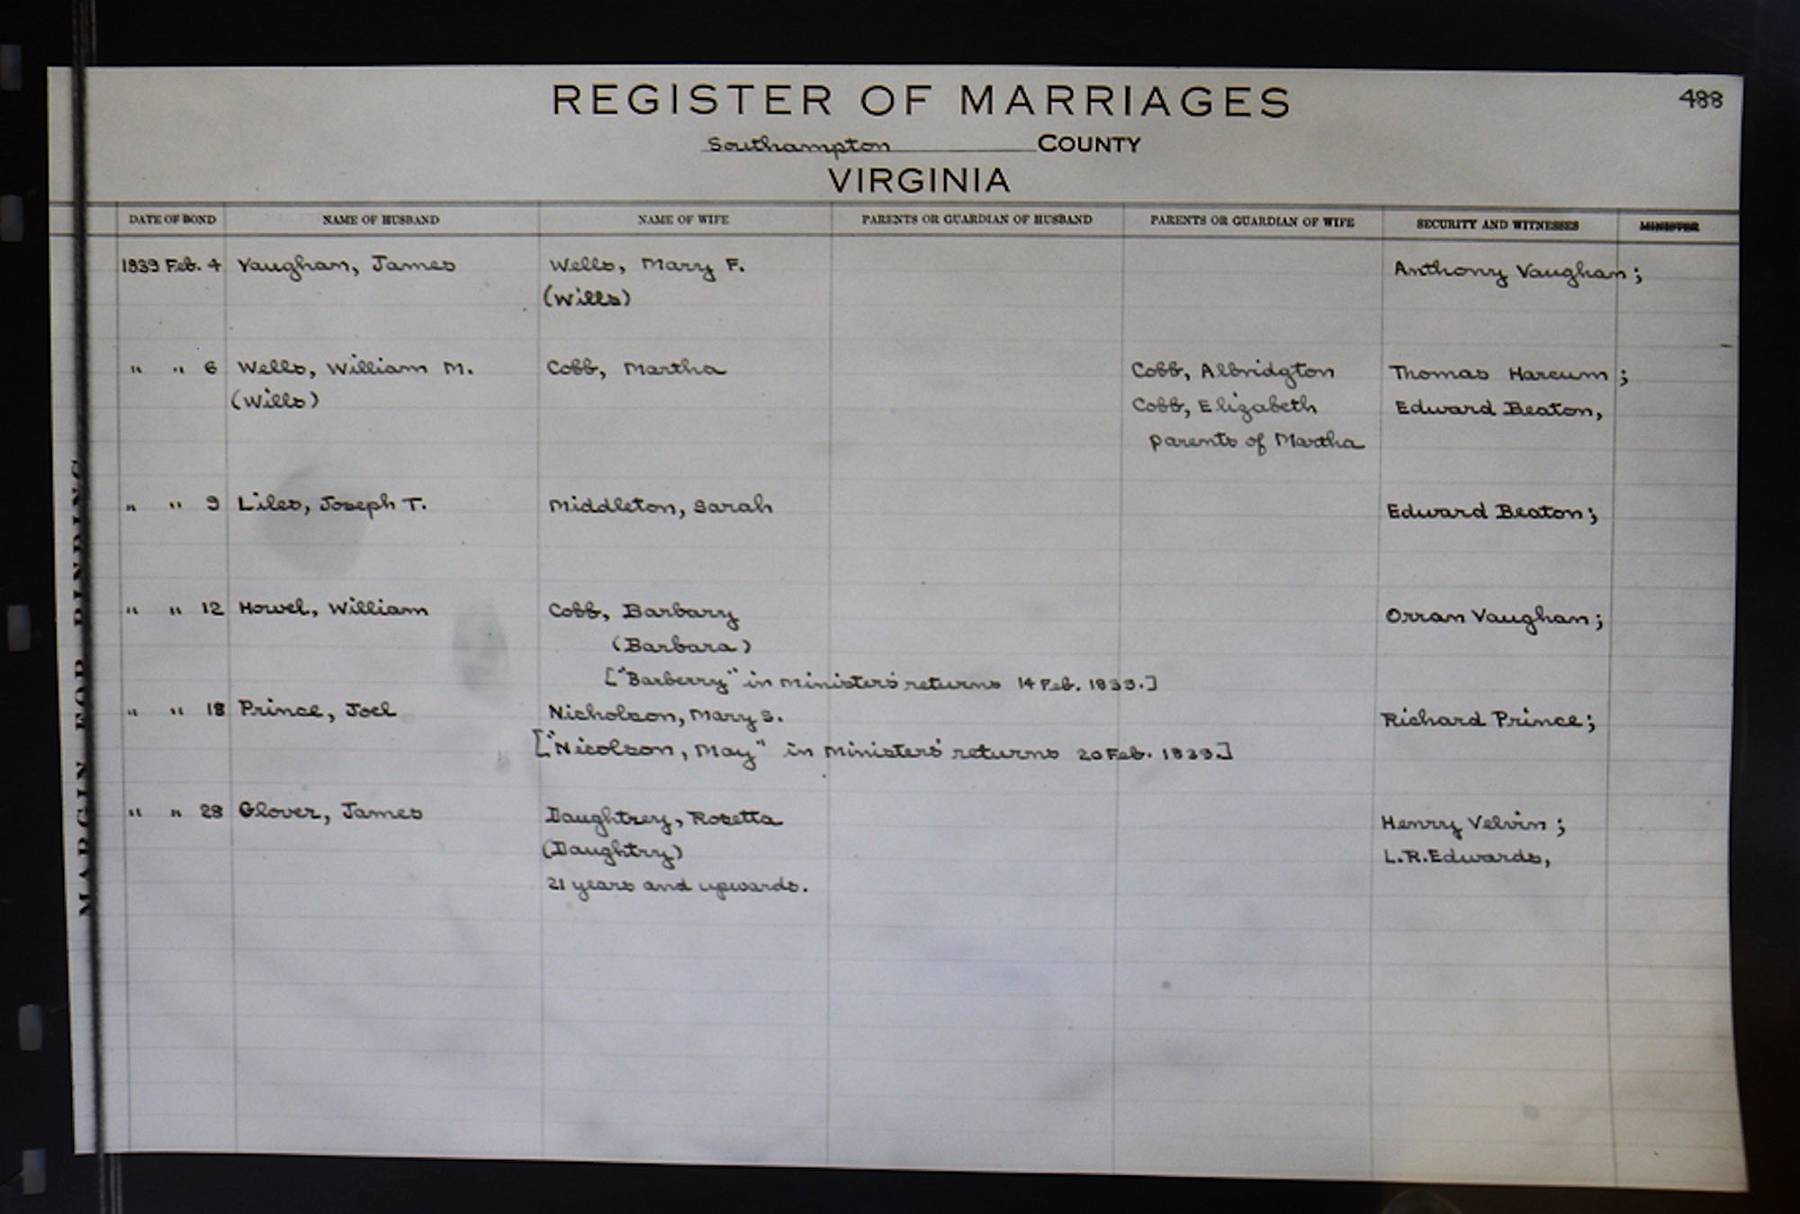 REGISTER OF MARRIAGES
488
Southampton COUNTY
VIRGINIA
DATE OF BOND NAME OF HUSBAND NAME OF WIFE PARENTS OR GUARDIAN OF HUSBAND PARENTS OR GUARDIAN OF WIFE SECURITY AND WITNESSES MINISTER
1839 Feb. 4 Vaughan, James Wells, Mary F. Anthony Vaughan;
(Wills)
" " 6 Wells, William M. Cobb, Martha Cobb, Albridgton Thomas Harcum;
(Wills) Cobb, Elizabeth Edward Beaton,
parents of Martha
" " 9 Liles, Joseph T. Middleton, Sarah Edward Beaton;
" " 12 Howel, William Cobb, Barbary Orran Vaughan;
(Barbara)
["Barberry" in ministers' returns 14 Feb. 1839.]
" " 18 Prince, Joel Nicholson, Mary S. Richard Prince;
["Nicolson, May" in ministers' returns 20 Feb. 1839.]
" " 28 Glover, James Daughtrey, Rosetta Henry Velvin;
(Daughtry) L.R. Edwards,
21 years and upwards.
MARGIN FOR BINDING